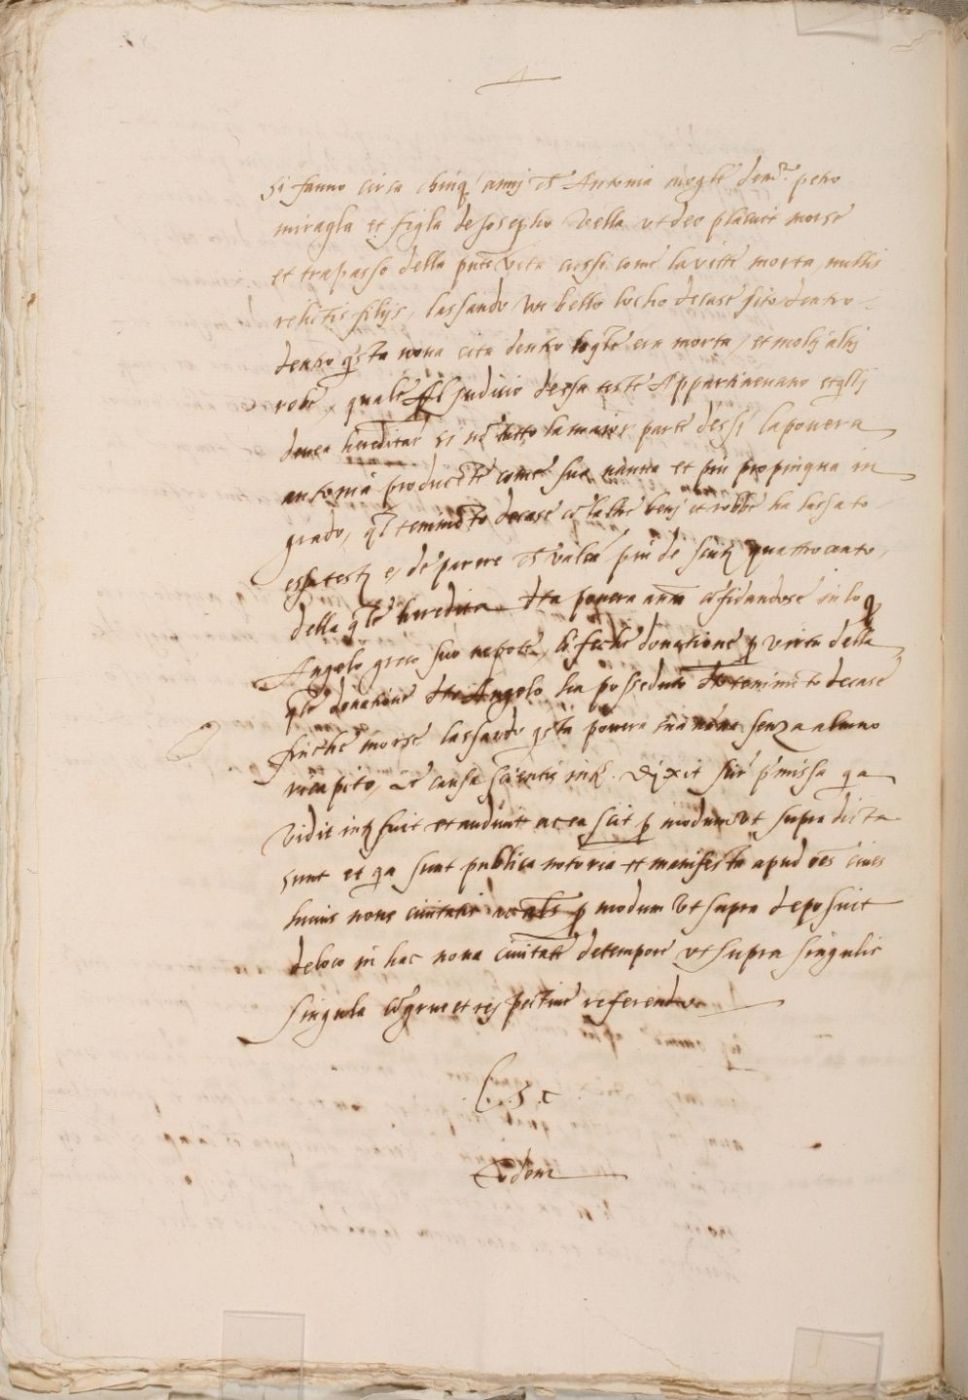 si fanno circa chinq' annj ch Antonia mogle de m.ro petro
miragla et figla de Josepho Vella ut deo placuit morse
et trapasso della pnte vita cussi come la vitti morta, nullis
relictis filijs, lassando un bello locho de case sito dentro
dentro questa nova cita dentro logle era morta, et molti altri
robe, quale Al judicio de essa teste Appartinevano et
devea hereditar si no tutto la maior parte dessi la povera
antonia producente come sua nanna et piu propinqua in
grado, ql tenimento de case co laltre beni et robbe ha lassato
essa testj e, de parere ch valea piu de scuti quattrocento,
della qle heredita dta povera confidandose in lo
Angelo greco suo nepote, le fece donatione p virtu della
qle donatione dto Angelo ha posseduto dto tenimento de case
finche morse lassando questa povera nanna senza alcuno
recapito, De causa scientie intg. Dixit scire pmissa qa
vidit intfuit et audivit ac ea scit p modum ut supra dicta
sunt et qa sunt publica notoria et manifesta apud oes cives
huius nove civitatis ac als p modum ut supra deposuit
de loco in hac nova civitate de tempore ut supra singulis
singula congrue et respective referendo